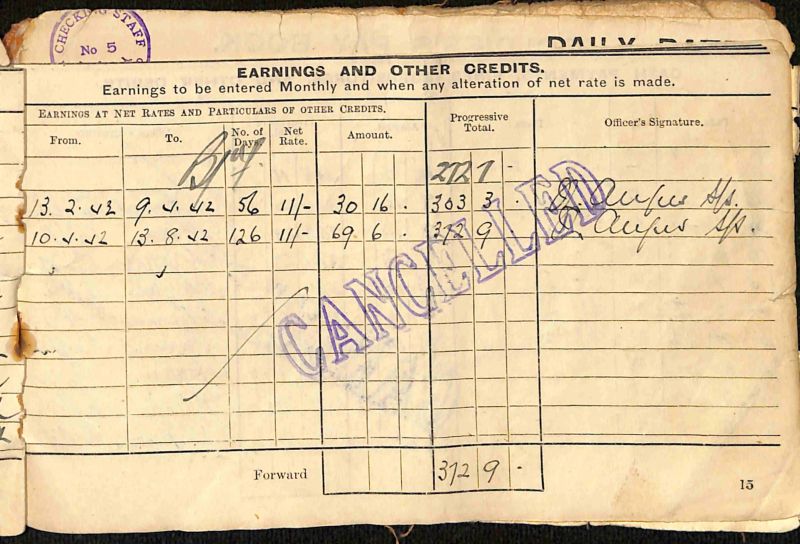 CHECKING STAFF
No 5
DAILY
EARNINGS AND OTHER CREDITS.
Earnings to be entered Monthly and when any alteration of net rate is made.
EARNINGS AT NET RATES AND PARTICULARS OF OTHER CREDITS.
From. To. No. of Days. Net Rate. Amount. Progressive Total. Officer's Signature.
272 7 -
13.2.42 9.4.42 56 11/- 30 16 . 303 3 . Angus
10.4.42 13.8.42 126 11/- 69 6 . 372 9 . Angus
CANCELLED
Forward 372 9 -
15